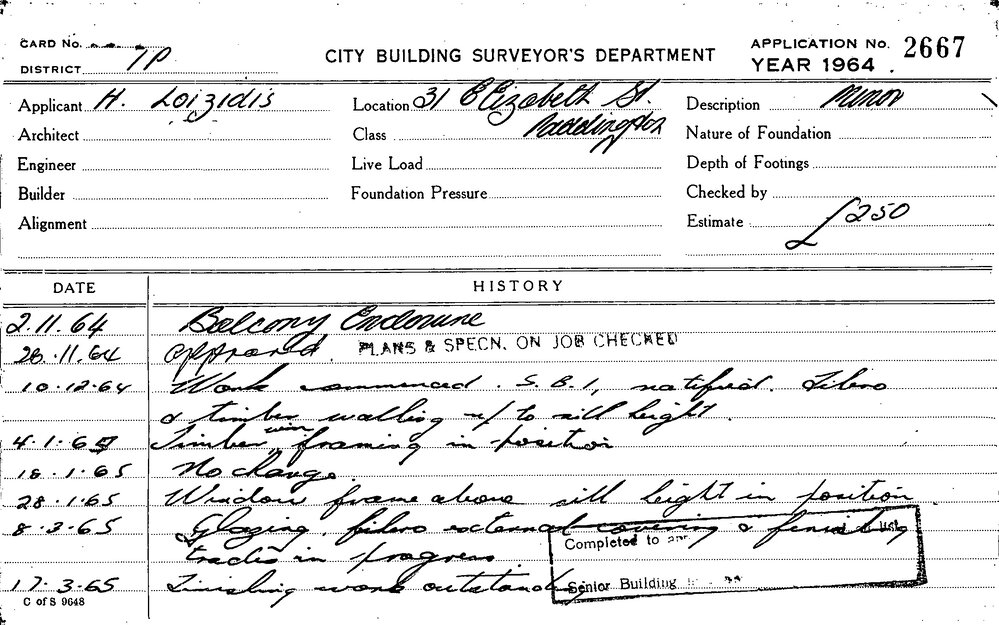 CARD No.
DISTRICT 1P
CITY BUILDING SURVEYOR'S DEPARTMENT
APPLICATION No. 2667
YEAR 1964
Applicant H. Loizidis
Location 31 Elizabeth St.
Paddington
Description Minor
Architect
Class
Nature of Foundation
Engineer
Live Load
Depth of Footings
Builder
Foundation Pressure
Checked by
Alignment
Estimate £250
DATE
HISTORY
2.11.64 Balcony Enclosure
28.11.64 Approved. PLANS & SPECN. ON JOB CHECKED
10.12.64 Work commenced. S.B.I, notified. Fibro
& timber walling up to sill height.
4.1.65 Timber framing in position
18.1.65 No change.
28.1.65 Window frame above sill height in position
8.3.65 Glazing, fibro external covering & finishing
trades in progress.
Completed to
17.3.65 Finishing work outstanding
Senior Building
C of S 9648